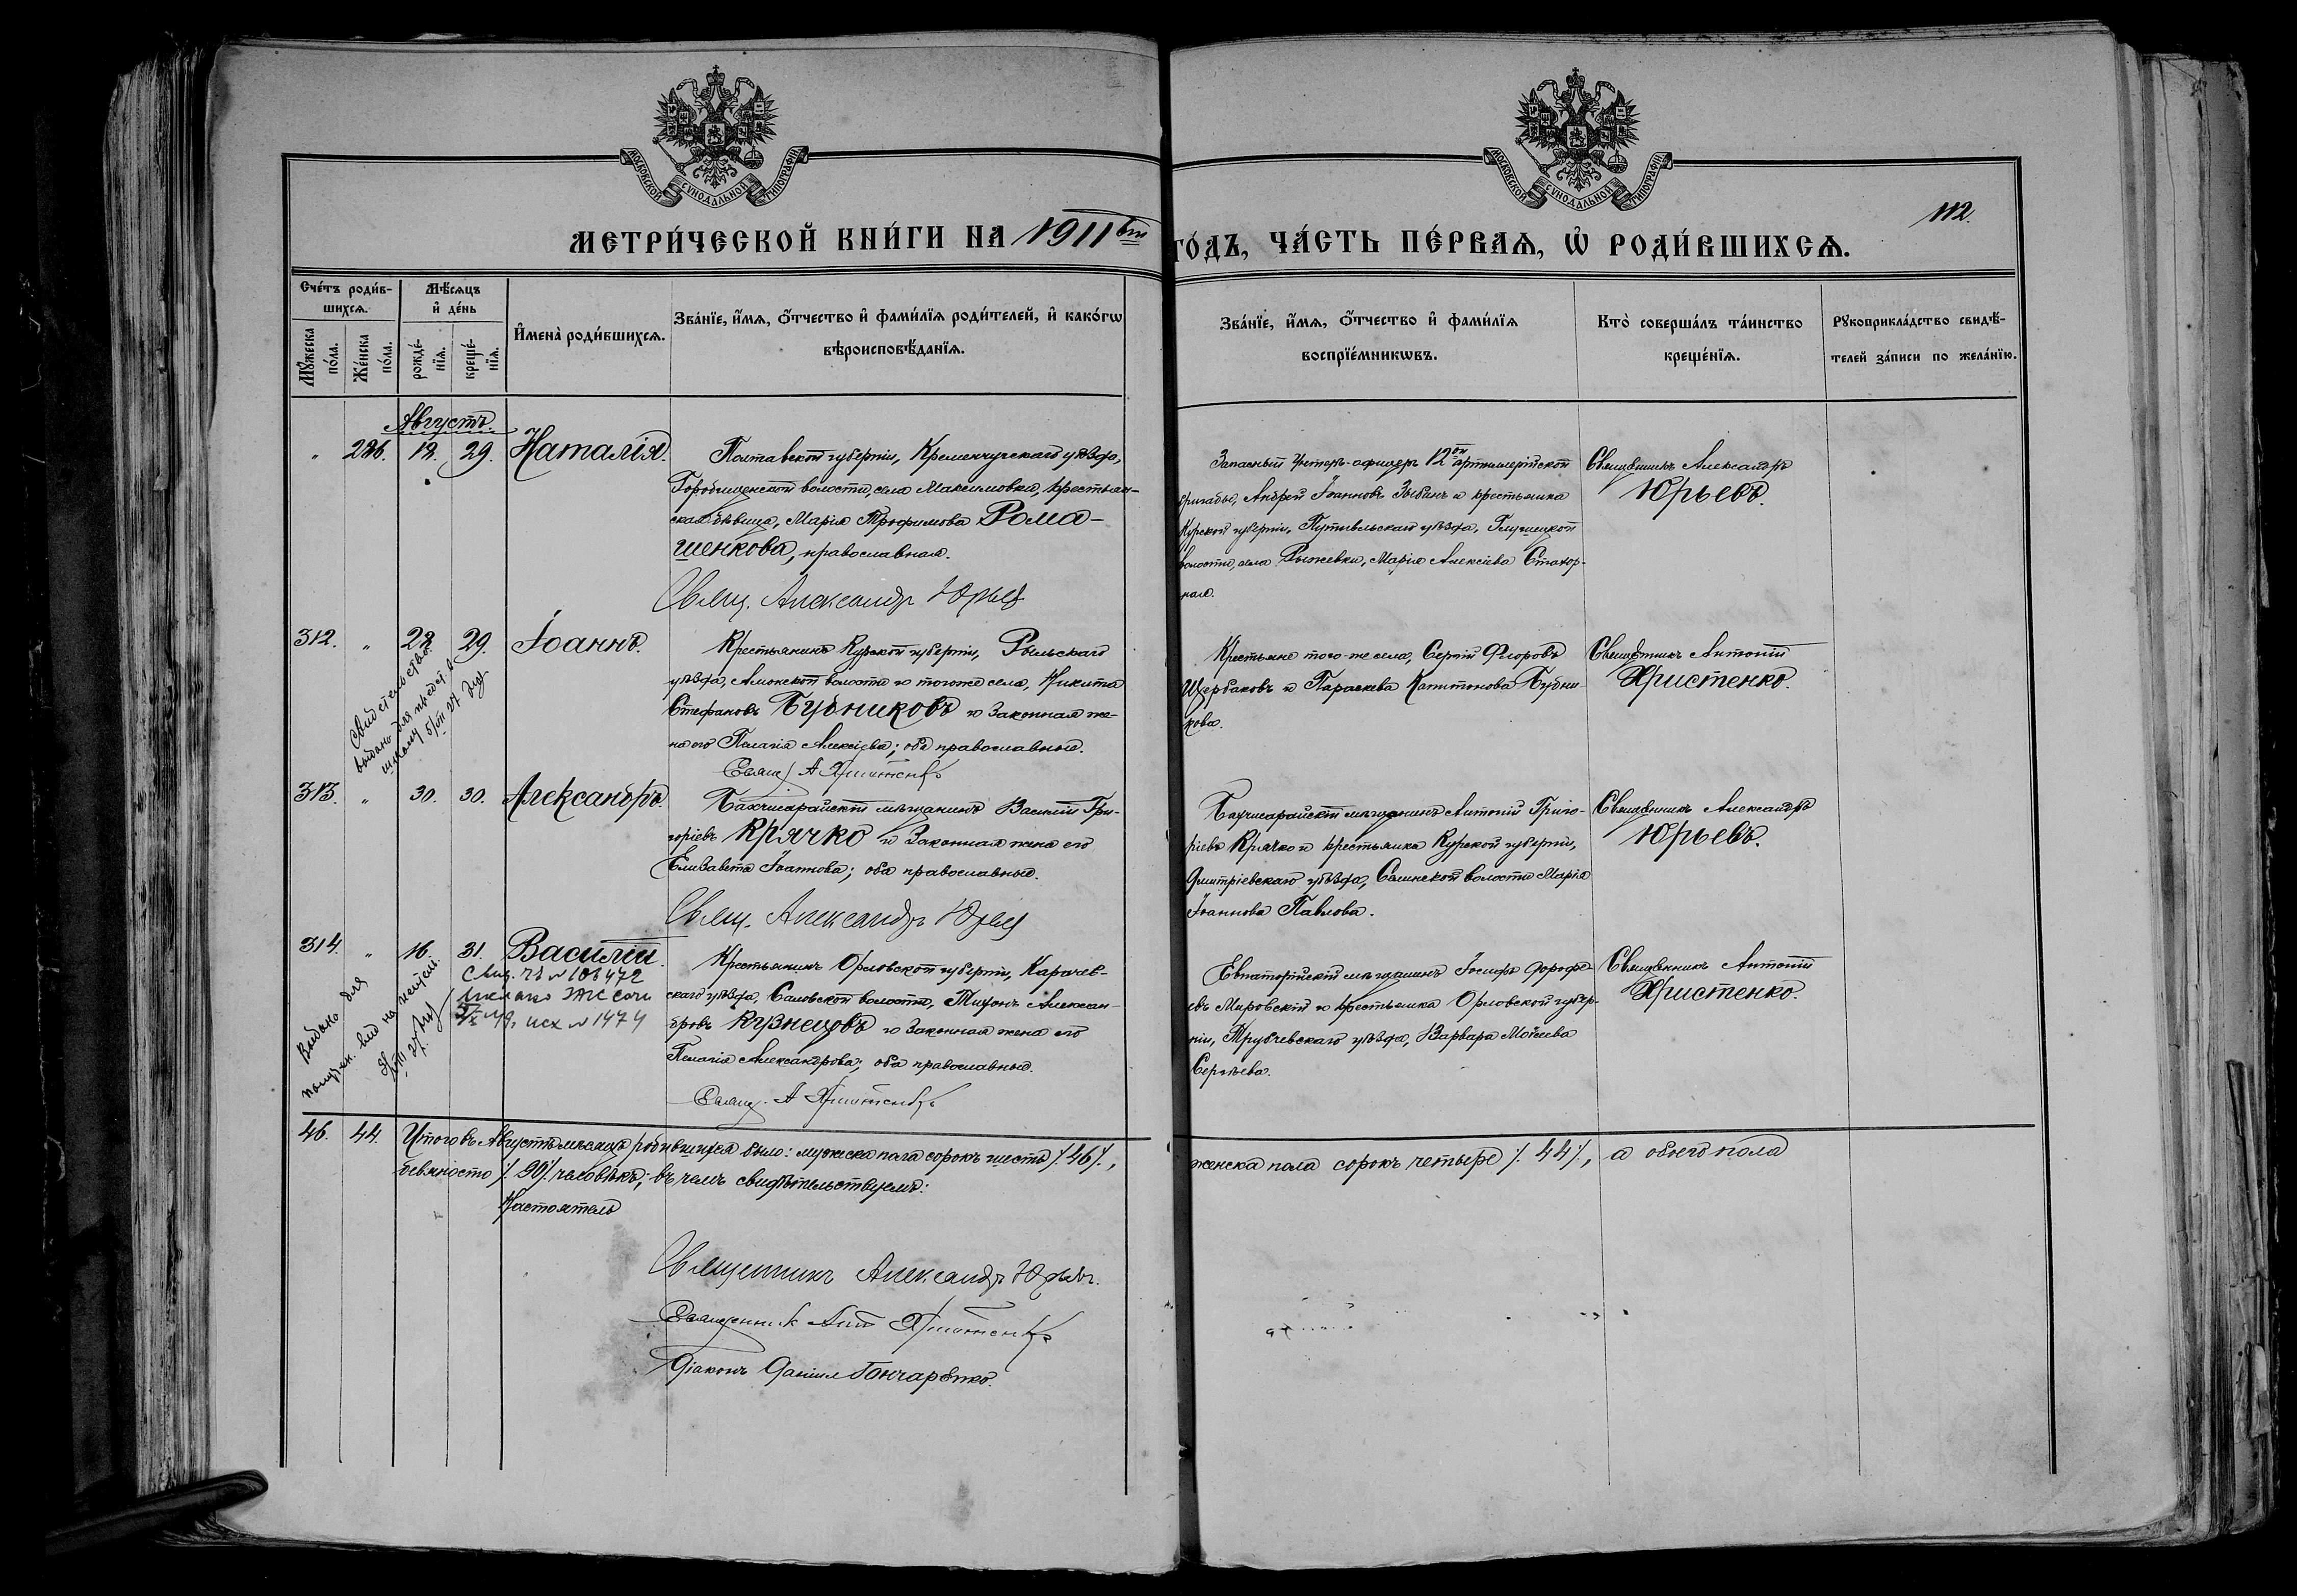 МОСКОВСКОЙ СѴНОДАЛЬНОЙ ТИПОГРАФІИ
МОСКОВСКОЙ СѴНОДАЛЬНОЙ ТИПОГРАФІИ
112.
МЕТРИ́ЧЕСКОЙ КНИ́ГИ НА 1911ый
ГО́ДЪ, ЧА́СТЬ ПЕ́РВАѦ, Ѽ РОДИ́ВШИХСѦ.
Сче́тъ роди́в-
шихсѧ.
Мꙋ́жеска по́ла.
Же́нска по́ла.
Мѣ́сѧцъ
и҆ де́нь
рожде́-
нїѧ.
креще́-
нїѧ.
И҆мена̀ роди́вшихсѧ.
Зва́нїе, и҆́мѧ, ѻ҆́тчество и҆ фами́лїѧ роди́телей, и҆ како́гѡ
вѣроисповѣ́данїѧ.
Зва́нїе, и҆́мѧ, ѻ҆́тчество и҆ фами́лїѧ
воспрїе́мникѡвъ.
Кто̀ соверша́лъ та́инство
креще́нїѧ.
Рꙋкоприкла́дство свидѣ́-
телей за́писи по жела́нїю.
Августъ.
" 286. 18. 29. Наталія.
Полтавской губерніи, Кременчугскаго уѣзда,
Городищенской волости, села Максимовки, крестьян-
ская дѣвица, Марія Трофимова Рома-
шенкова, православная.
Свящ. Александр Юрьев
Запасный унтеръ-офицеръ 12ой артиллерійской
бригады, Андрей Іоанновъ Зыбинъ и крестьянка
Курской губерніи, Путивльскаго уѣзда, Глушецкой
волости, села Рыжевки, Марія Алексіева
Священникъ Александръ
Юрьевъ.
312. " 28. 29. Іоаннъ.
Крестьянинъ Курской губерніи, Рыльскаго
уѣзда, Амонской волости и тогоже села, Никита
Стефановъ Бубниковъ и законная же-
на его Пелагія Алексіева; оба православные.
Свящ. А Христенко
Крестьяне того-же села, Сергій Флоровъ
Щербаковъ и Параскева Капитонова Бубни-
кова.
Священникъ Антоній
Христенко.
Свидетельство
выдано для предст. в
школу 5/VII 27
313. " 30. 30. Александръ.
Бахчисарайскій мѣщанинъ Василій Гри-
горіевъ Крячко и законная жена его
Елизавета Іоаннова; оба православные.
Свящ. Александр Юрьев
Бахчисарайскій мѣщанинъ Антоній Григо-
ріевъ Крячко и крестьянка Курской губерніи,
Дмитріевскаго уѣзда, Селинской волости Марія
Іоаннова Павлова.
Священникъ Александръ
Юрьевъ.
314. " 16. 31. Василій.
исх № 1474
Выдано для
получен.
Крестьянинъ Орловской губерніи, Карачев-
скаго уѣзда, Саловской волости, Тихонъ Алексан-
дровъ Кузнецовъ и законная жена его
Пелагія Александрова; оба православные.
Свящ. А Христенко
Евпаторійскій мѣщанинъ Іосифъ Дорофе-
евъ Мировскій и крестьянка Орловской губер-
ніи, Трубчевскаго уѣзда, Варвара Моѵсеева
Сергѣева.
Священникъ Антоній
Христенко.
46. 44. Итого въ Августѣ мѣсяцѣ родившихся было: мужска пола сорокъ шесть /.46/.,
женска пола сорокъ четыре /.44/., а обоего пола
девяносто /.90/. человѣкъ; въ чемъ свидѣтельствуемъ:
Настоятель
Священникъ Александр Юрьевъ.
Священник Ант Христенко
Діаконъ Даніил Гончаренко.